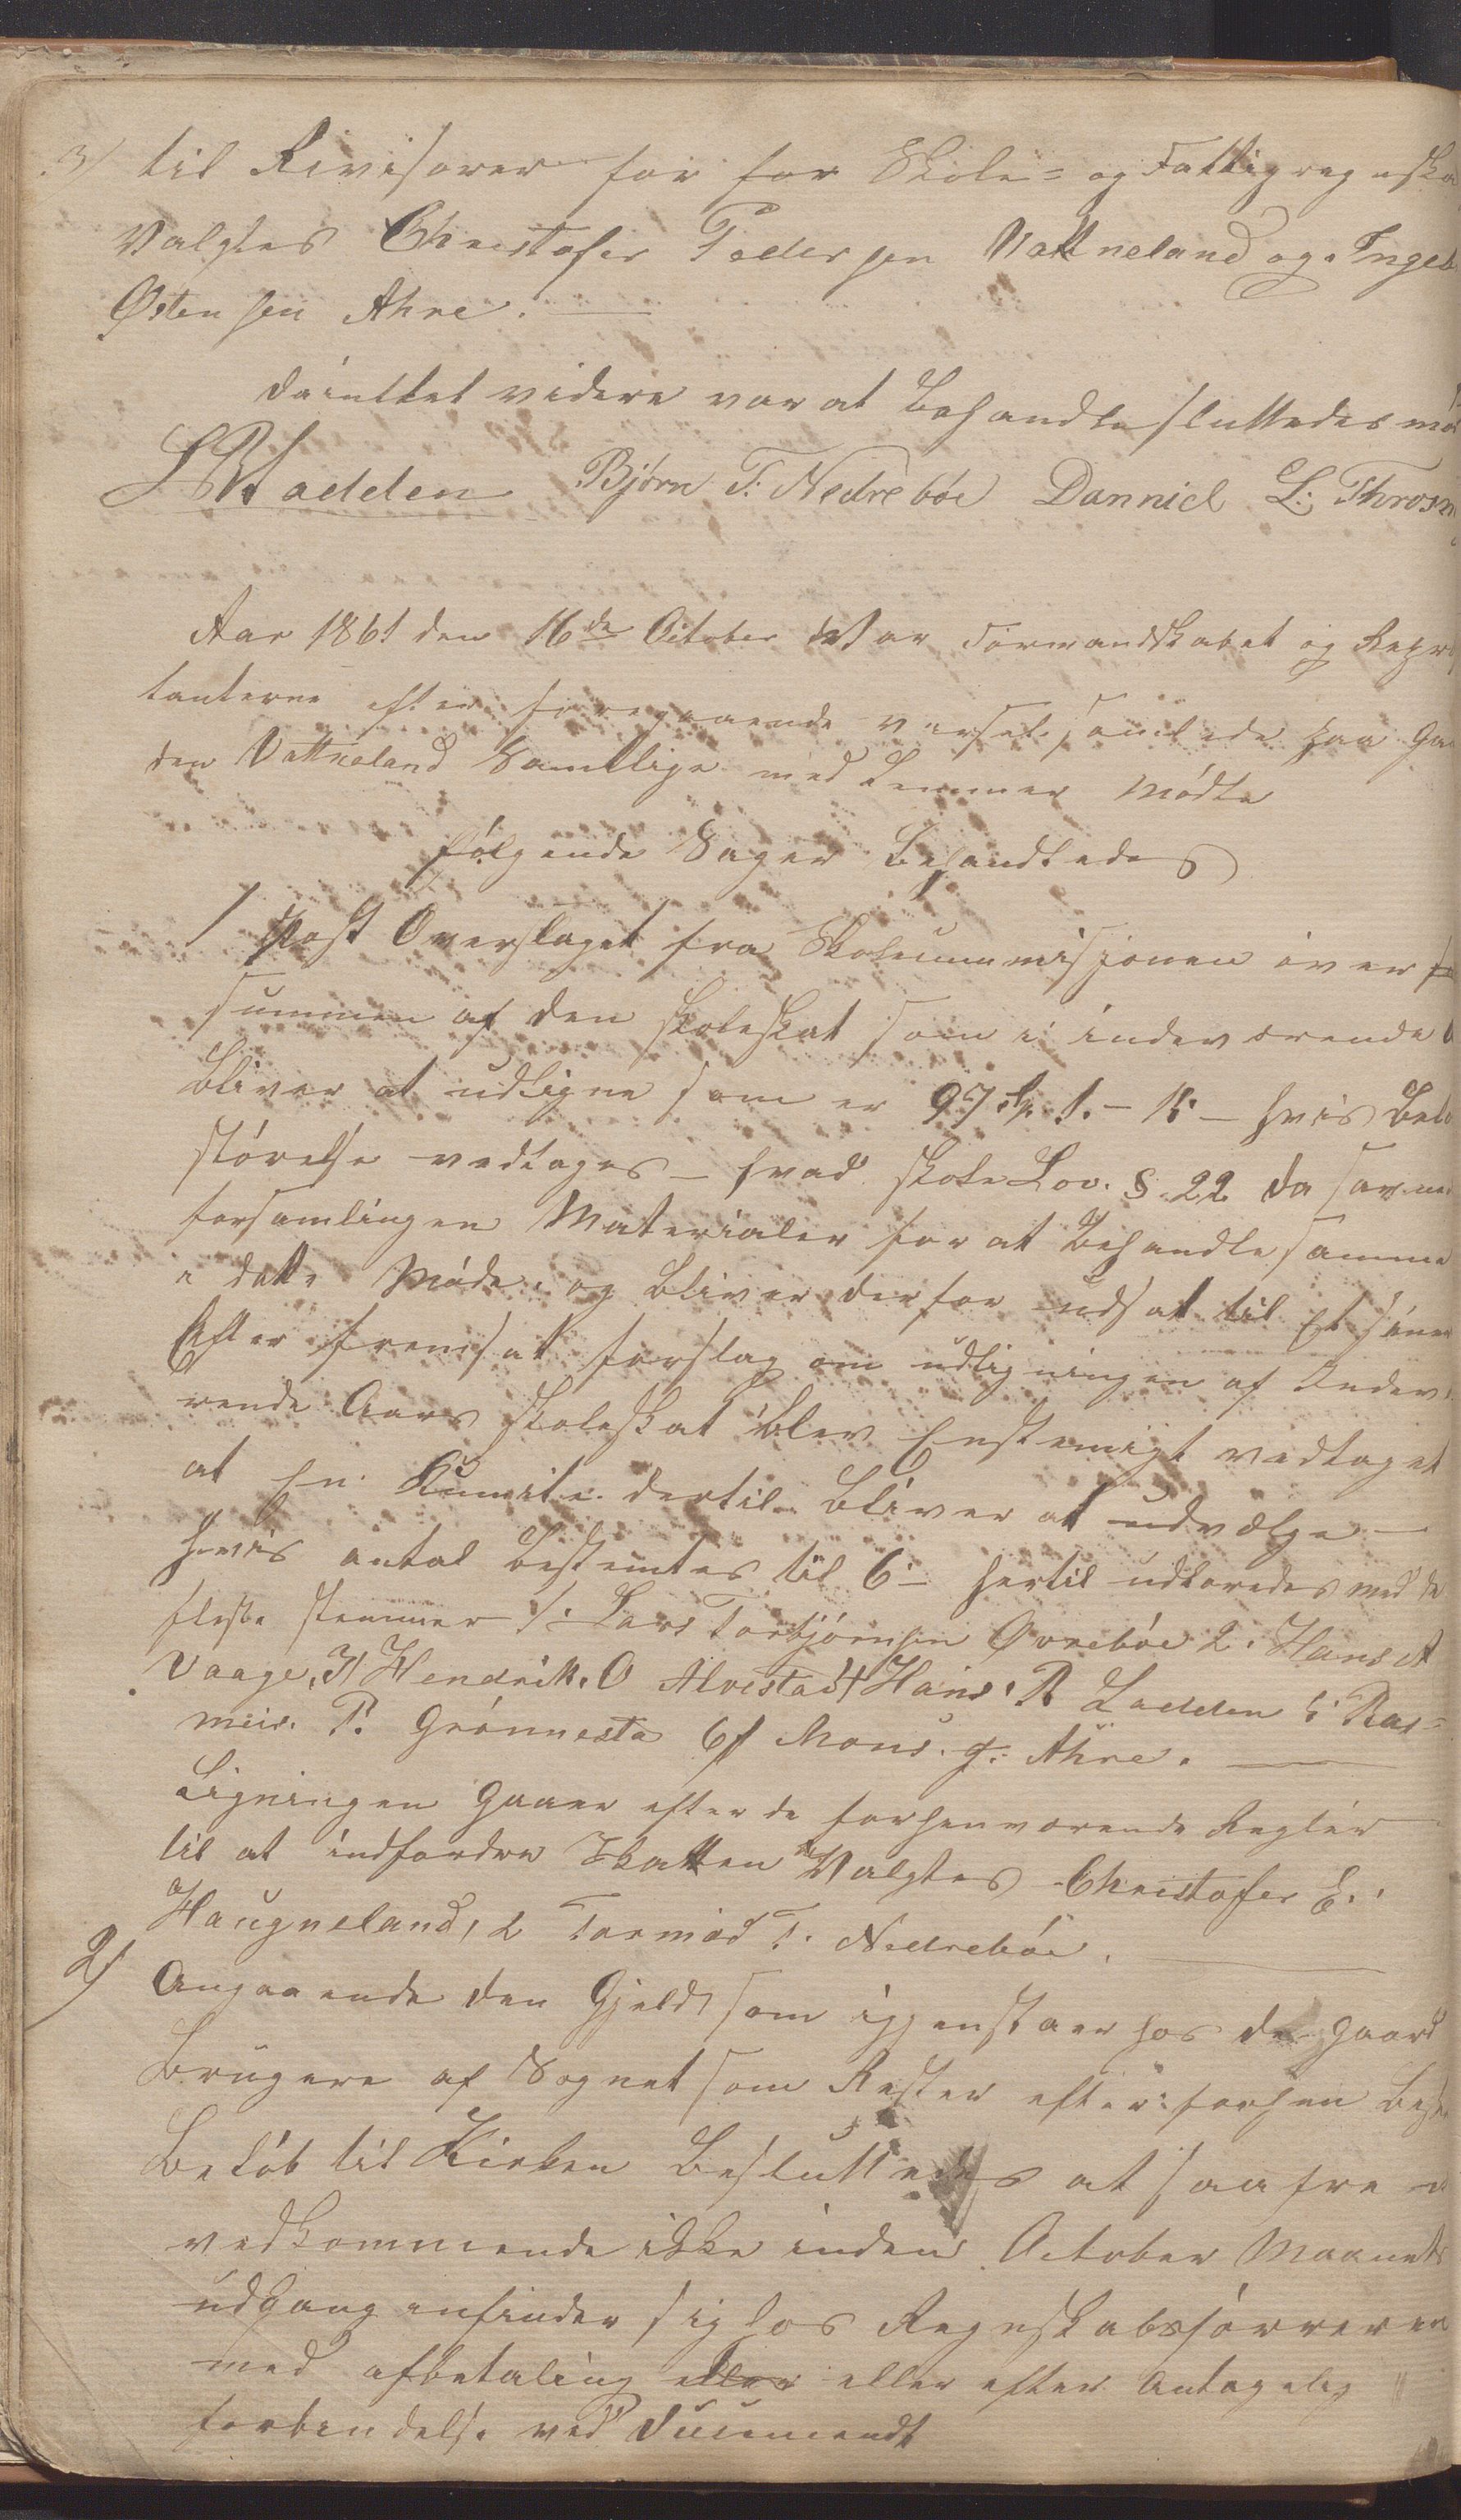 3/ til Revisorer for for Skole- og Fattigregnska
Valgtes Christofer Pedersen Vattneland og Ingeb
Østensen Ahre.
Da intet videre var at Behandle sluttedes mø
Ladden Bjørn T. Nedrebøe Danniel L. Throsn
Aar 1861 den 16de October Var Formandskabet og Repræ
tanterne efter foregaaende varsel samlede paa Ga
den Vattneland Samtlige medlemmer Mødte
følgende Sager Behandledes
1 Post Overslaget fra Skolecommisjonen over
summen af den skoleskat som i indeværende
bliver at udligne som er 97 Sp. 1. - 15 - hvis Belø
størelse vedtages - hvad skole Lov. § 22 da savner
forsamlingen Materialer for at Behandle samme
i dette Møde. og bliver derfor udsat til Et sener
Efter fremsat forslag om udligningen af Indevæ
rende Aars skoleskat blev Enstemigt vedtaget
at En Kumite dertil bliver at udvælge -
hvis antal bestemtes til 6 - hertil udkaaredes med de
fleste stemmer 1: Lars Torbjørnsen Øvrebøe 2. Hans A
Vaage, 3/ Hendrik. O Alvestad 4/ Hans R Ladden 5: Ras=
mus. P. Grønnesta 6/ Mons. g. Ahre.
Ligningen Gaaer efter de forhenværende Regler
til at indfordre Skatten Valgtes Christofer E.
Haugneland, 2 Tormod T. Nedrebøe.
2/ Angaaende den Gjeld som igjenstaar hos de Gaard
Brugere af Sognet som Rester efter forhen
Beløb til Kirken Besluttedes at saafre
vedkommende ikke inden October Maanets
udgang infinder sig hos Regnskabsførreren
med afbetaling eller eller efter Antagelig
forbindelse ved Ducumendt